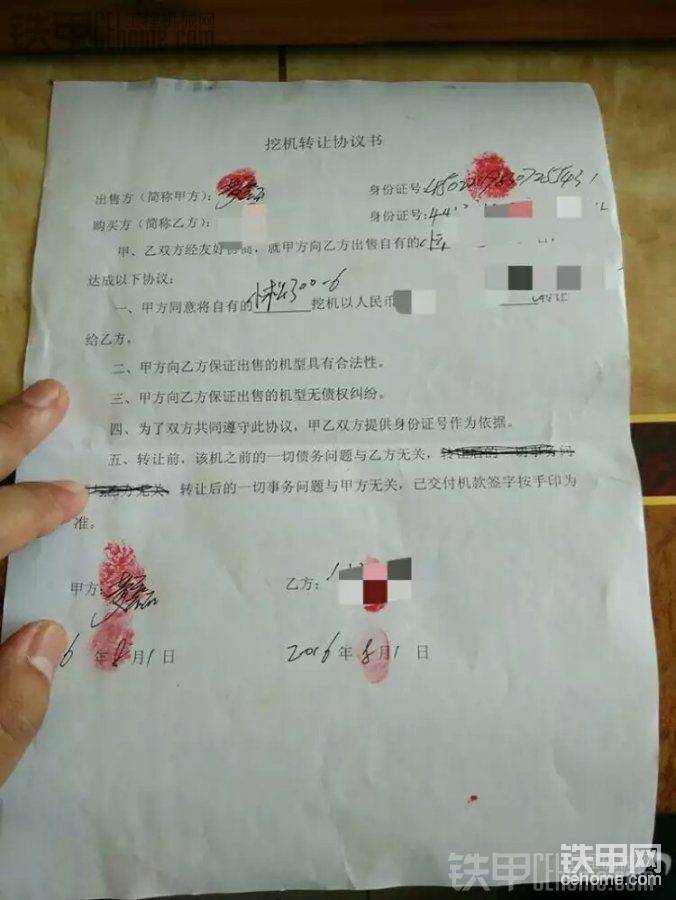 铁甲工程机械网
CEhome.com
挖机转让协议书
出售方（简称甲方）： 身份证号：
购买方（简称乙方）： 身份证号：
甲、乙双方经友好协商，就甲方向乙方出售自有的
达成以下协议：
一、甲方同意将自有的小松300-6挖机以人民币
给乙方。
二、甲方向乙方保证出售的机型具有合法性。
三、甲方向乙方保证出售的机型无债权纠纷。
四、为了双方共同遵守此协议，甲乙双方提供身份证号作为依据。
五、转让前，该机之前的一切债务问题与乙方无关，转让后的一切事务问
与乙方无关，转让后的一切事务问题与甲方无关，已交付机款签字按手印为
准。
甲方： 乙方：
6 年 8 月 1 日 2016 年 8 月 1 日
铁甲网
cehome.com